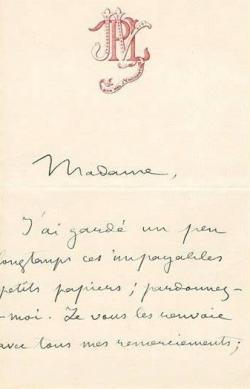 Madame,
J'ai gardé un peu
longtemps ces impayables
petits papiers ; pardonnez-
-moi. Je vous les renvoie
avec tous mes remerciements ;